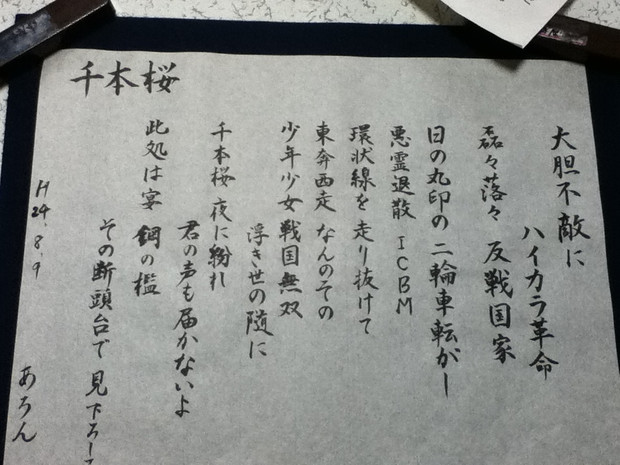 千本桜
大胆不敵に
ハイカラ革命
磊々落々 反戦国家
日の丸印の 二輪車転がし
悪霊退散 ICBM
環状線を 走り抜けて
東奔西走 なんのその
少年少女 戦国無双
浮き世の随に
千本桜 夜に紛れ
君の声も届かないよ
此処は宴 鋼の檻
その断頭台で 見下ろして
H24.8.9
あろん